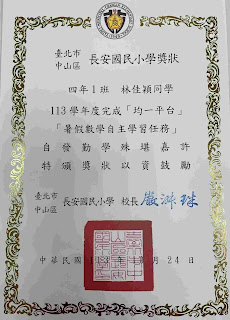 臺北市
中山區 長安國民小學獎狀
四年1班 林佳穎同學
113學年度完成「均一平台」
「暑假數學自主學習任務」
自發勤學殊堪嘉許
特頒獎狀以資鼓勵
臺北市
中山區 長安國民小學 校長
中華民國113年 月24日